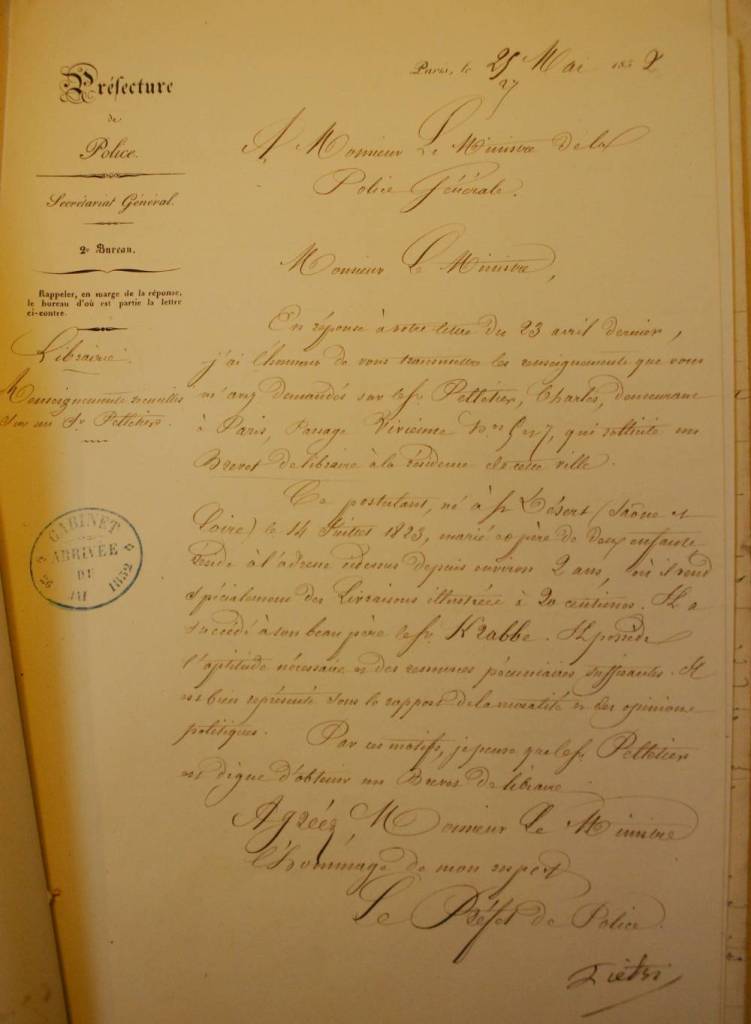 Préfecture
de
Police.
Secrétariat Général.
2e Bureau.
Rappeler, en marge de la réponse,
le bureau d'où est partie la lettre
ci-contre.
Librairie.
Renseignements recueillis
sur un Sr Pelletier.
GABINET
ARRIVÉE
DU
26
1852
Paris, le 25 Mai 1852
27
A Monsieur Le Ministre de la
Police Générale.
Monsieur Le Ministre,
En réponse à votre lettre du 23 avril dernier,
j'ai l'honneur de vous transmettre les renseignements que vous
m'avez demandés sur le Sr Pelletier, Charles, demeurant
à Paris, Passage Vivienne Nos 5 et 7, qui sollicite un
Brevet de libraire à la résidence de cette ville.
Ce postulant, né à St Désert (Saône et
Loire) le 14 Juillet 1823, marié et père de deux enfants
réside à l'adresse cidessus depuis environ 2 ans, où il vend
spécialement des Livraisons illustrées à 20 centimes. Il a
succédé à son beau père le Sr Krabbe. Il possède
l'aptitude nécessaire et des ressources pécuniaires suffisantes. Il
est bien représenté sous le rapport de la moralité et des opinions
politiques. Par ces motifs, je pense que le Sr Pelletier
est digne d'obtenir un Brevet de libraire
Agréez, Monsieur Le Ministre
l'hommage de mon respect
Le Préfet de Police.
Piétri